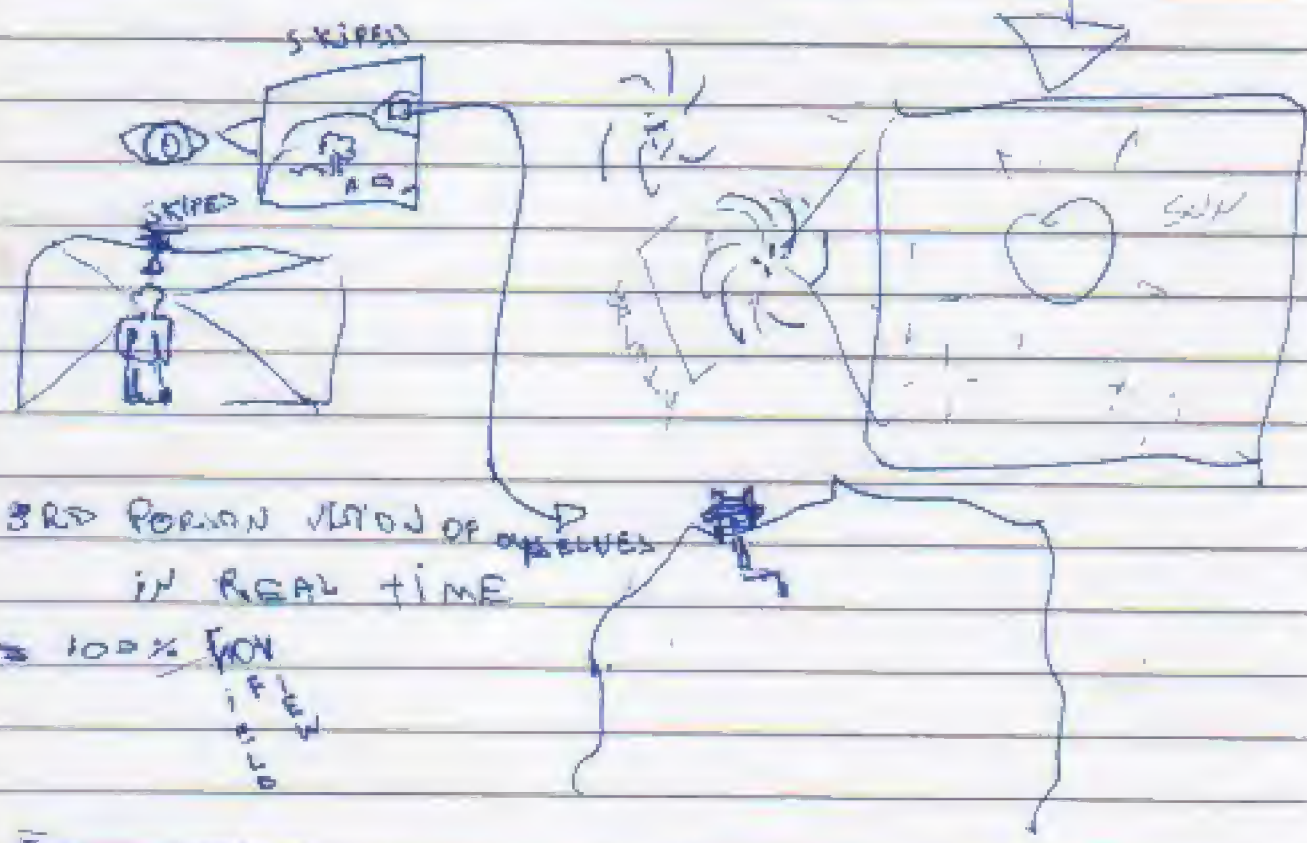 SKIPED
SKIPED
SUN
GALAXY
3RD PERSON VISION OF OURSELVES
IN REAL TIME
100% FOV
IELD
F
IEW